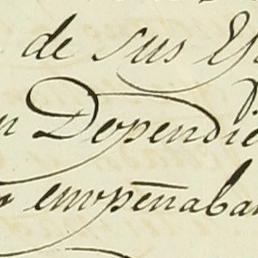 de sus Es
en Dependie
empeñaban